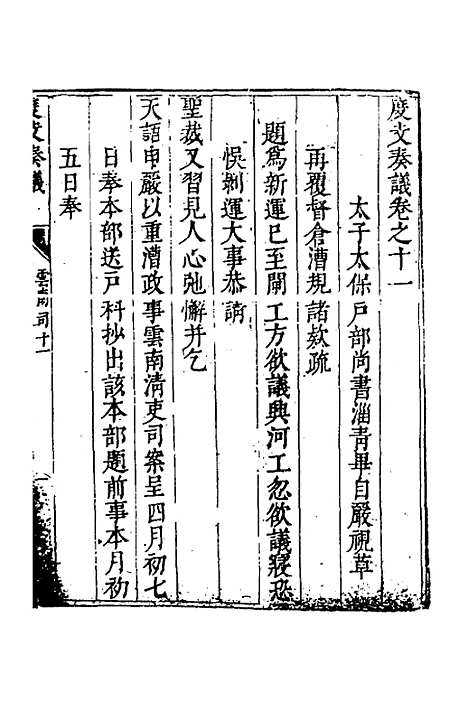 度支奏議卷之十一
太子太保戶部尚書淄青畢自嚴視草
再覆督倉漕規諸欵疏
題爲新運已至閘工方欲議興河工忽欲議寢恐
悞剝運大事恭請
聖裁又習見人心弛懈并乞
天語申嚴以重漕政事雲南清吏司案呈四月初七
日奉本部送戶科抄出該本部題前事本月初
五日奉
度支奏議
雲南司十一